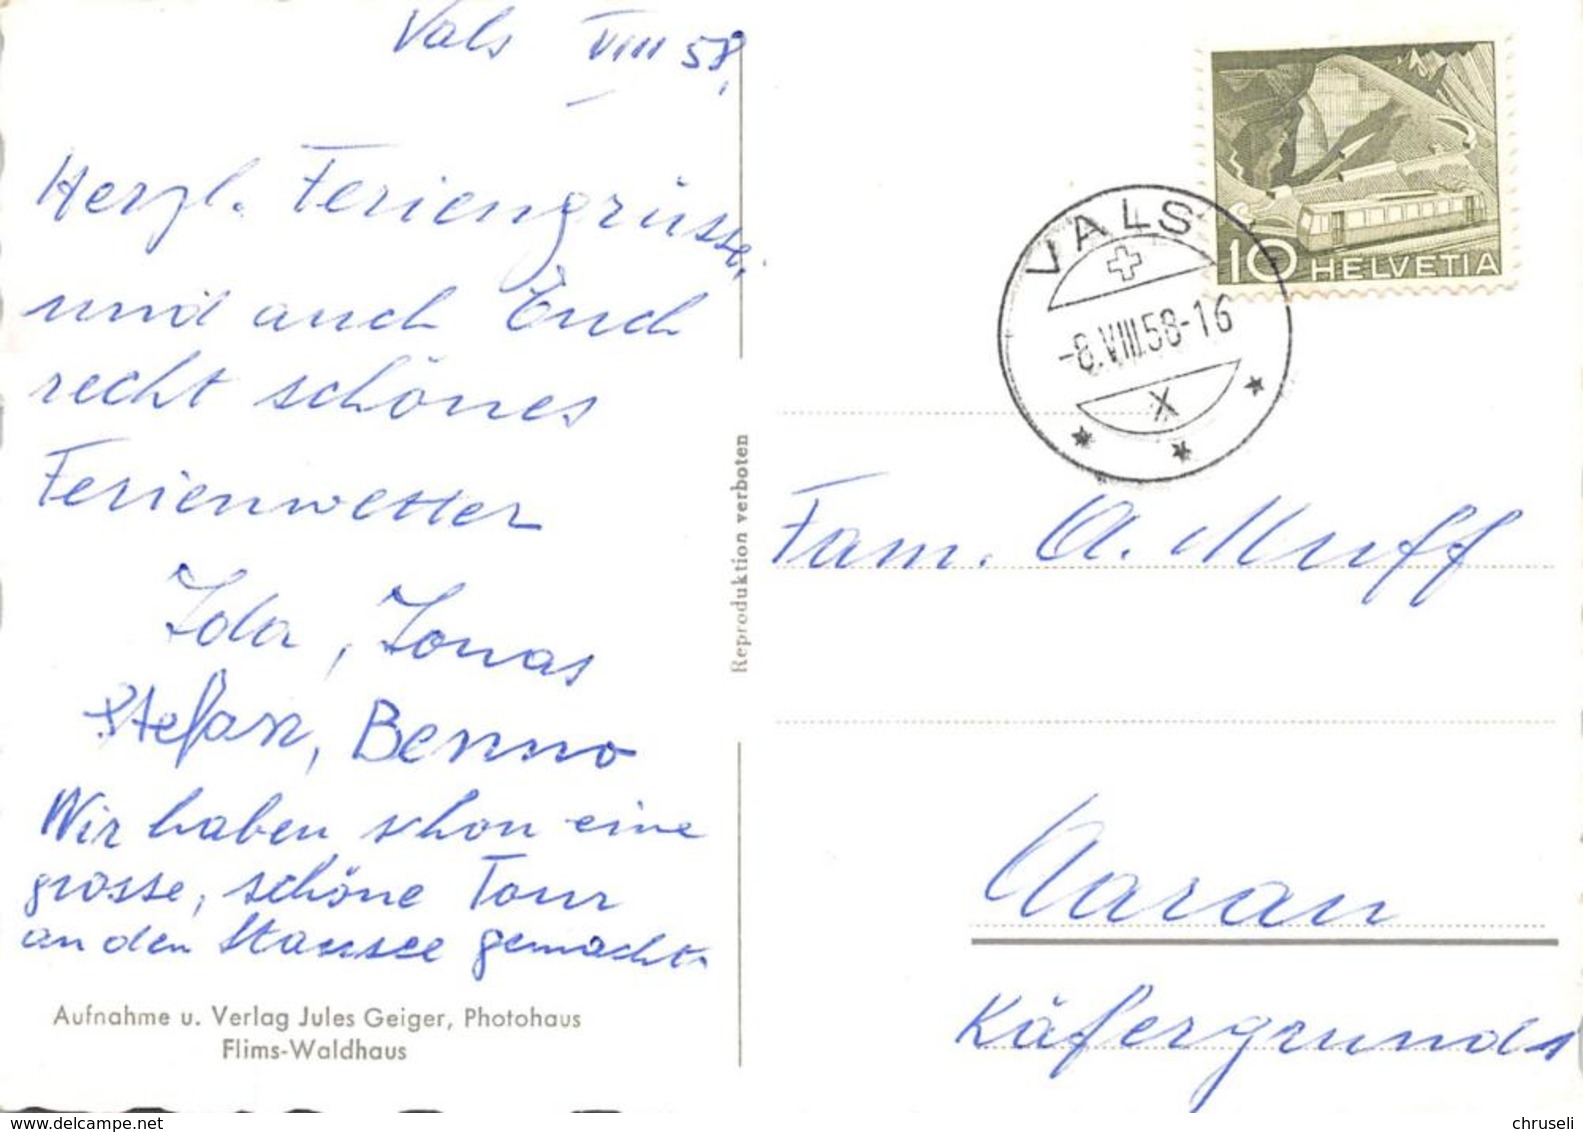 Vals VIII 58.
Herzl. Feriengrüsse,
und auch Euch
recht schönes
Ferienwetter
Ida, Jonas
Stefan, Benno
Wir haben schon eine
grosse, schöne Tour
an den Stausee gemacht.
Aufnahme u. Verlag Jules Geiger, Photohaus
Flims-Waldhaus
Reproduktion verboten
10 HELVETIA
VALS
-8.VIII.58-16
X
Fam. A. Muff
Aarau
Käfergrund
www.delcampe.net
chruseli